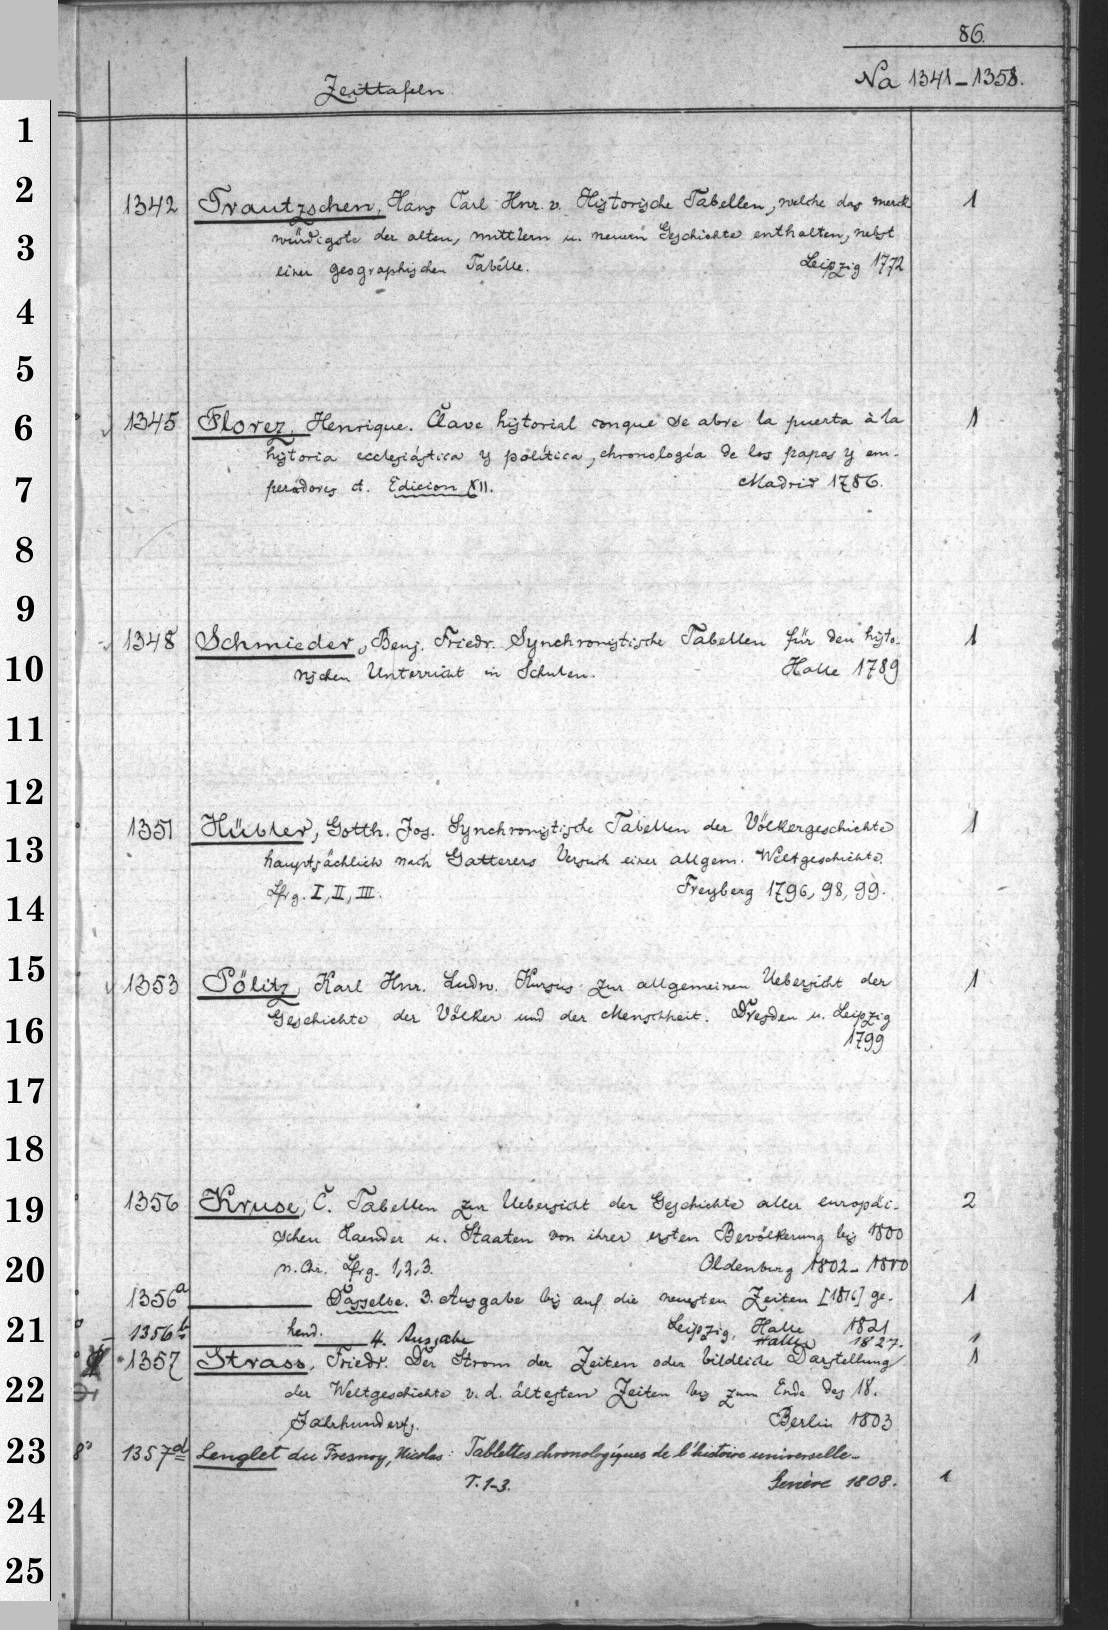 86.
Zeittafeln
Na 1341-1358.
1342 Trautzschen, Hans Carl Hnr. v. Historische Tabellen, welche das merck 1
würdigste der alten, mittlern u. neuern Geschichte enthalten, nebst
einer geographischen Tabelle. Leipzig 1772
1345 Florez, Henrique. Clave historial conque se abre la puerta à la 1
historia ecclesiástica y política, chronología de los papas y em-
peradores et. Edicion XII. Madrid 1786.
1348 Schmieder, Benj. Friedr. Synchronistische Tabellen für den histo- 1
rischen Unterricht in Schulen. Halle 1789
1351 Hübler, Gotth. Jos. Synchronistische Tabellen der Völkergeschichte 1
hauptsächlich nach Gatterers Versuch einer allgem. Weltgeschichte.
Lfrg. I, II, III. Freyberg 1796, 98, 99.
1353 Pölitz, Karl Hnr. Ludw. Kursus zur allgemeinen Uebersicht der 1
Geschichte der Völker und der Menschheit. Dresden u. Leipzig
1799
1356 Kruse, C. Tabellen zur Uebersicht der Geschichte aller europäi- 2
schen Laender u. Staaten von ihrer ersten Bevölkerung bis 1800
n. Chr. Lfrg. 1,2,3. Oldenburg 1802-1810
1356a Dasselbe. 3. Ausgabe bis auf die neuesten Zeiten [1816] ge- 1
hend. Leipzig, Halle 1821
1356b 4. Ausgabe Halle 1827. 1
1357 Strass, Friedr. Der Strom der Zeiten oder bildliche Darstellung 1
der Weltgeschichte v. d. ältesten Zeiten bis zum Ende des 18.
Jahrhunderts. Berlin 1803
8° 1357d Lenglet du Fresnoy, Nicolas: Tablettes chronologiques de l'histoire universelle.
T. 1-3. Genève 1808. 1
1
2
3
4
5
6
7
8
9
10
11
12
13
14
15
16
17
18
19
20
21
22
23
24
25